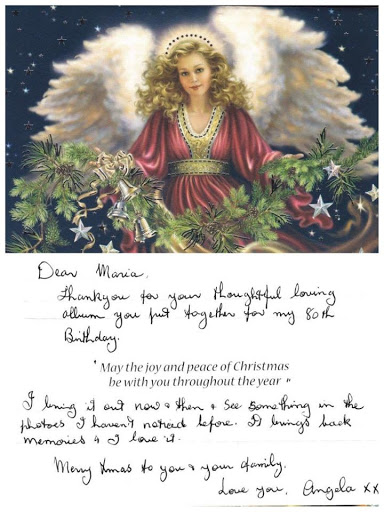 Dear Maria,
Thankyou for your thoughtful loving
album you put together for my 80th
Birthday.
' May the joy and peace of Christmas
be with you throughout the year "
I bring it out now & then & see something in the
photoes I haven't noticed before. It brings back
memories & I love it.
Merry Xmas to you & your family.
Love you, Angela xx